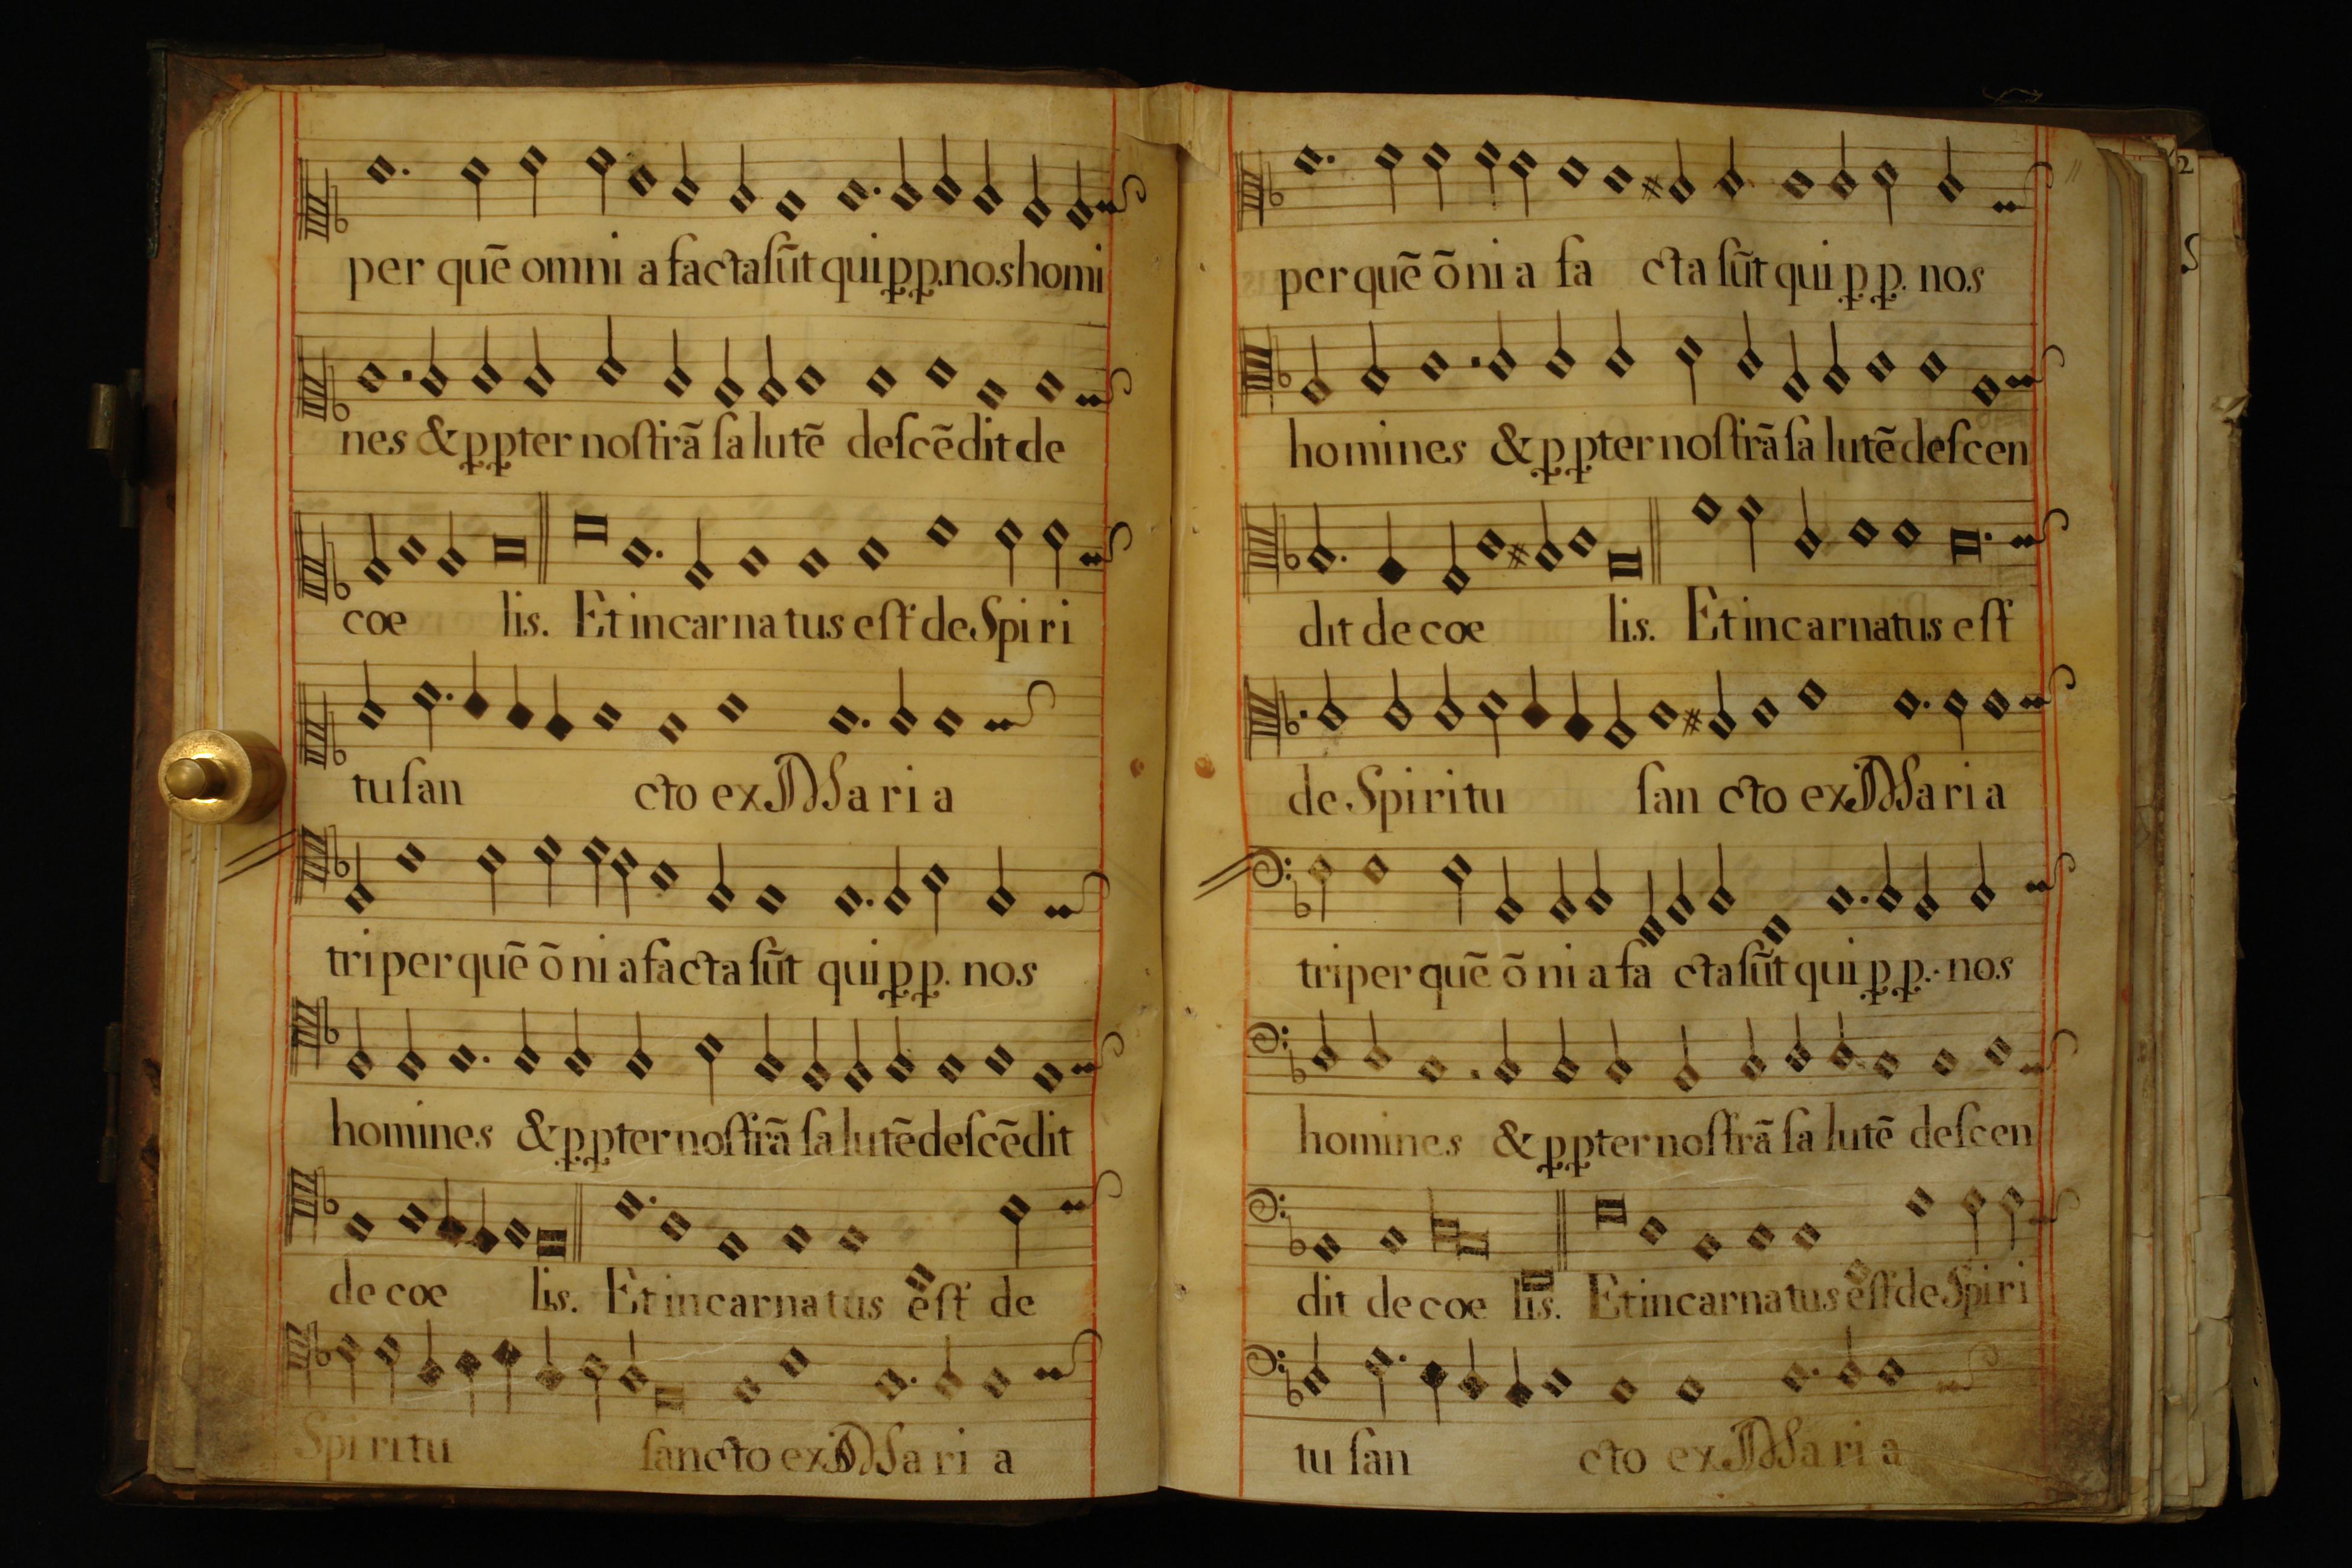 per quē omni a facta ſūt qui p p. nos homi
nes & p pter noſtrā ſa lutē deſcēdit de
coe lis. Et incarna tus eſt de Spi ri
tu ſan cto ex Ma ri a
tri per quē ō ni a facta ſūt qui p p. nos
homines & p pter noſtrā ſa lutē deſcēdit
de coe lis. Et incarna tus eſt de
Spi ri tu ſancto ex Ma ri a
per quē ō ni a fa cta ſūt qui p p. nos
homines & p pter noſtrā ſa lutē deſcen
dit de coe lis. Et incarnatus eſt
de Spi ri tu ſan cto ex Ma ri a
tri per quē ō ni a fa cta ſūt qui p p. nos
homines & p pter noſtrā ſa lutē deſcen
dit de coe lis. Et incarna tus eſt de Spi ri
tu ſan cto ex Ma ri a
2